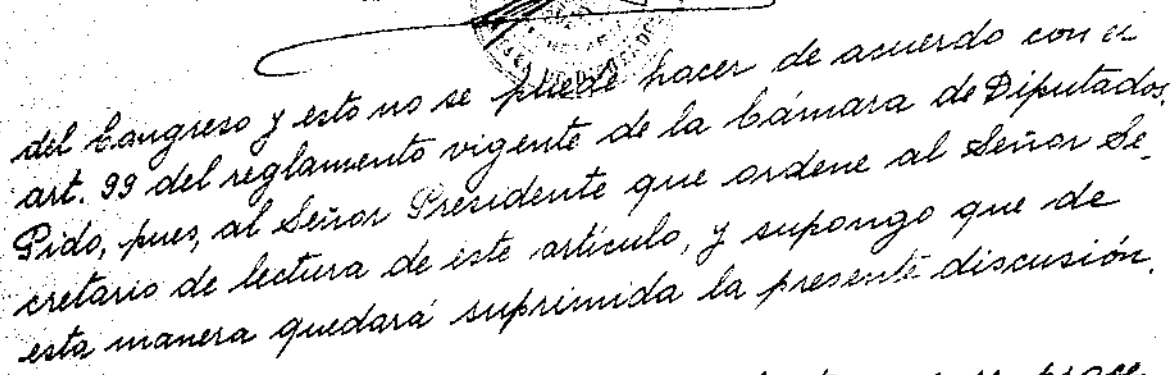 del Congreso y esto no se puede hacer de acuerdo con el
art. 99 del reglamento vigente de la Cámara de Diputados.
Pido, pues, al Señor Presidente que ordene al Señor Se-
cretario de lectura de éste artículo, y supongo que de
esta manera quedará suprimida la presente discusión.